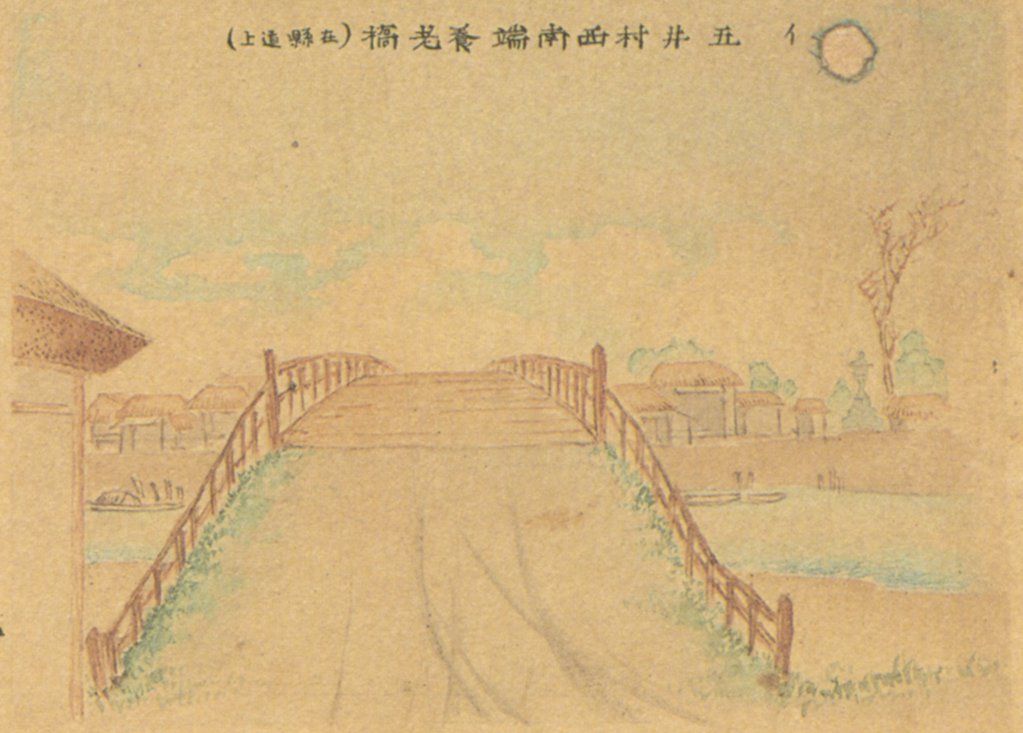 イ 五井村西南端養老橋(在縣道上)